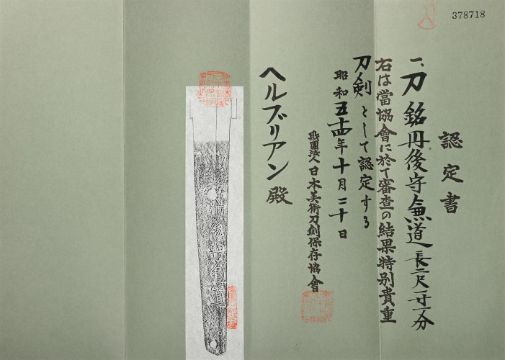 378718
認定書
一、刀 銘丹後守兼道 長二尺一寸一分
右は當協會に於て審査の結果特別貴重
刀剣として認定する
昭和五十四年十月二十日
財團法人日本美術刀剣保存協會
ヘルブリアン 殿